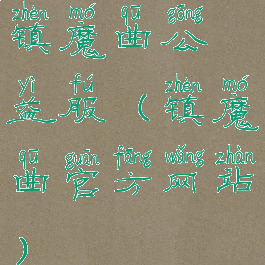 zhèn mó qū gōng
镇魔曲公
yì fú zhèn mó
益服(镇魔
qū guān fāng wǎng zhàn
曲官方网站
)